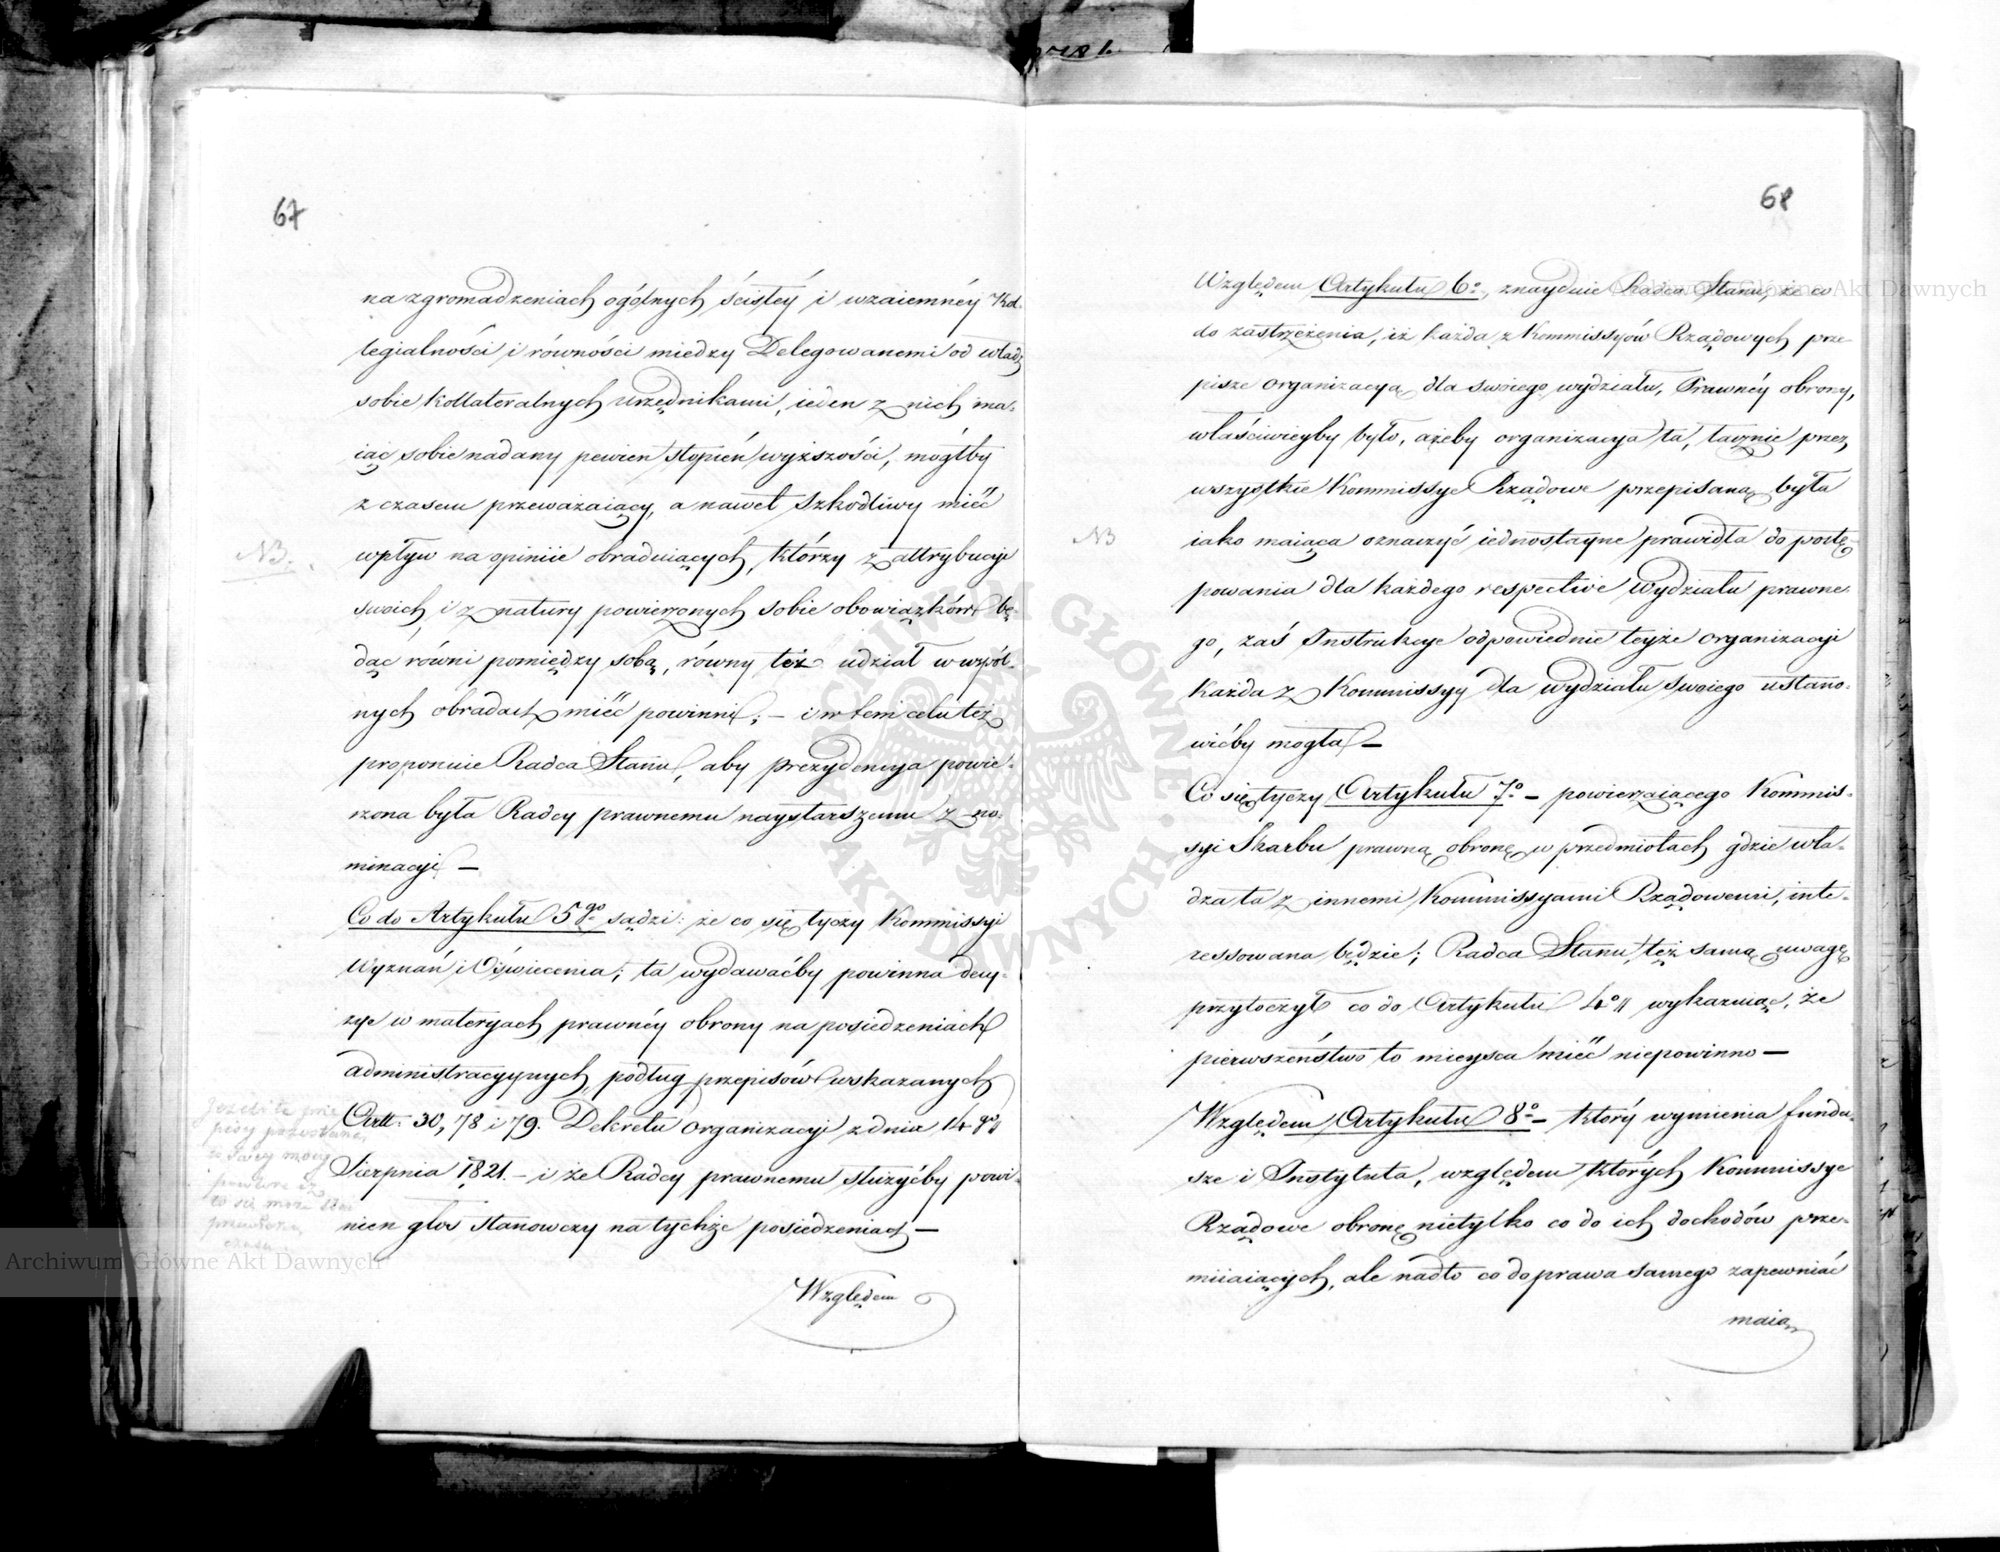 67
na zgromadzeniach ogólnych ścisłéy i wzaiemnéy Kol-
legialności i równości miedzy Delegowanemi od władz
sobie kollateralnych urzędnikami, ieden z nich ma-
iąc sobie nadany pewien stopień wyższości, mógłby
z czasem przeważaiący, a nawet szkodliwy mieć
NB.
wpływ na opiniie obraduiących, którzy z attrybucyi
swoich i z natury powierzonych sobie obowiązków bę-
dąc równi pomiędzy sobą, równy też udział w wspól-
nych obradach mieć powinni; – i w tem celu też
proponuie Radca Stanu, aby prezydencya powie-
rzona była Radcy prawnemu naystarszemu z no-
minacyi –
Co do Artykułu 5go sądzi: że co się tyczy Kommissyi
Wyznań i Oświecenia; ta wydawaćby powinna decy-
zye w materyach prawnéy obrony na posiedzeniach
administracyynych, podług przepisów wskazanych
Artt. 30, 78 i 79. Dekretu Organizacyi z dnia 14go
Sierpnia 1821. – i że Radcy prawnemu służyćby powi-
nien głos stanowczy na tychże posiedzeniach –
Jeżeli te prze
pisy
to się może
czasu
Względem
68
Względem Artykułu 6o, znayduie Radca Stanu, że co
do zastrzeżenia, iż każda z Kommissyów Rządowych prze
pisze organizacyą dla swoiego wydziału, Prawnéy obrony,
właściwieyby było, ażeby organizacya ta, łącznie przez
wszystkie Kommissye Rządowe przepisaną była
NB
iako maiąca oznaczyć iednostayne prawidła do postę-
powania dla każdego respective Wydziału prawne-
go, zaś Instrukcye odpowiednie teyże organizacyi
każda z Kommissyy dla wydziału swoiego ustano-
wićby mogła –
Co się tyczy Artykułu 7o – powierzaiącego Kommis-
syi Skarbu prawną obronę w przedmiotach gdzie wła-
dza ta z innemi Kommissyami Rządowemi, inte-
ressowana będzie; Radca Stanu, też samą uwagę
przytoczył co do Artykułu 4o wykazuiąc, że
pierwszeństwo to mieysca mieć niepowinno –
Względem Artykułu 8o – który wymienia fundu-
sze i Instytuta, względem których Kommissye
Rządowe obronę nietylko co do ich dochodów prze-
miiaiących, ale nadto co do prawa samego zapewniać
maią
Archiwum Główne Akt Dawnych
Archiwum Główne Akt Dawnych
ARCHIWUM GŁÓWNE AKT DAWNYCH